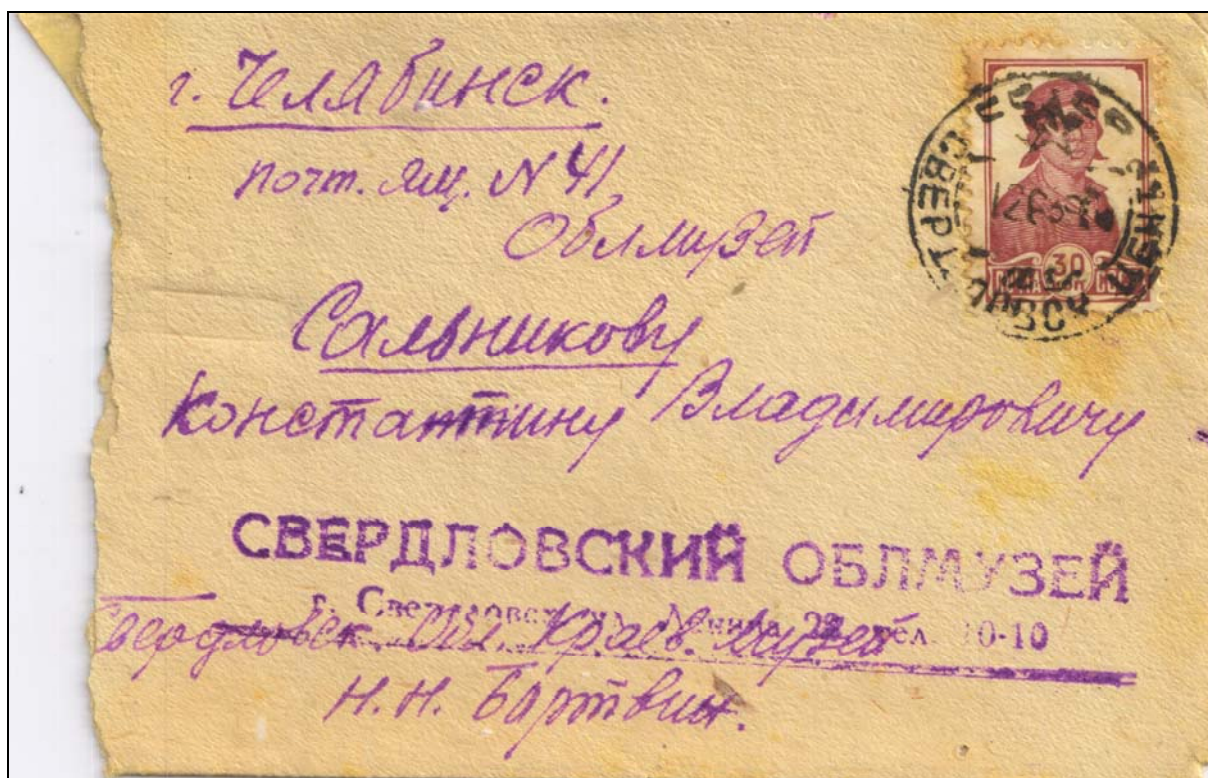 г. Челябинск.
почт. ящ. N 41
Облмузей
Сальникову
Константину Владимировичу
СВЕРДЛОВСКИЙ ОБЛМУЗЕЙ
г. Свердловск, ул. Ленина 22 тел. 10-10
Свердловск. Обл. Краев. музей
Н. Н. Бортвин.
СВЕРДЛОВСК ЦЕНТР
30
ПОЧТА СССР